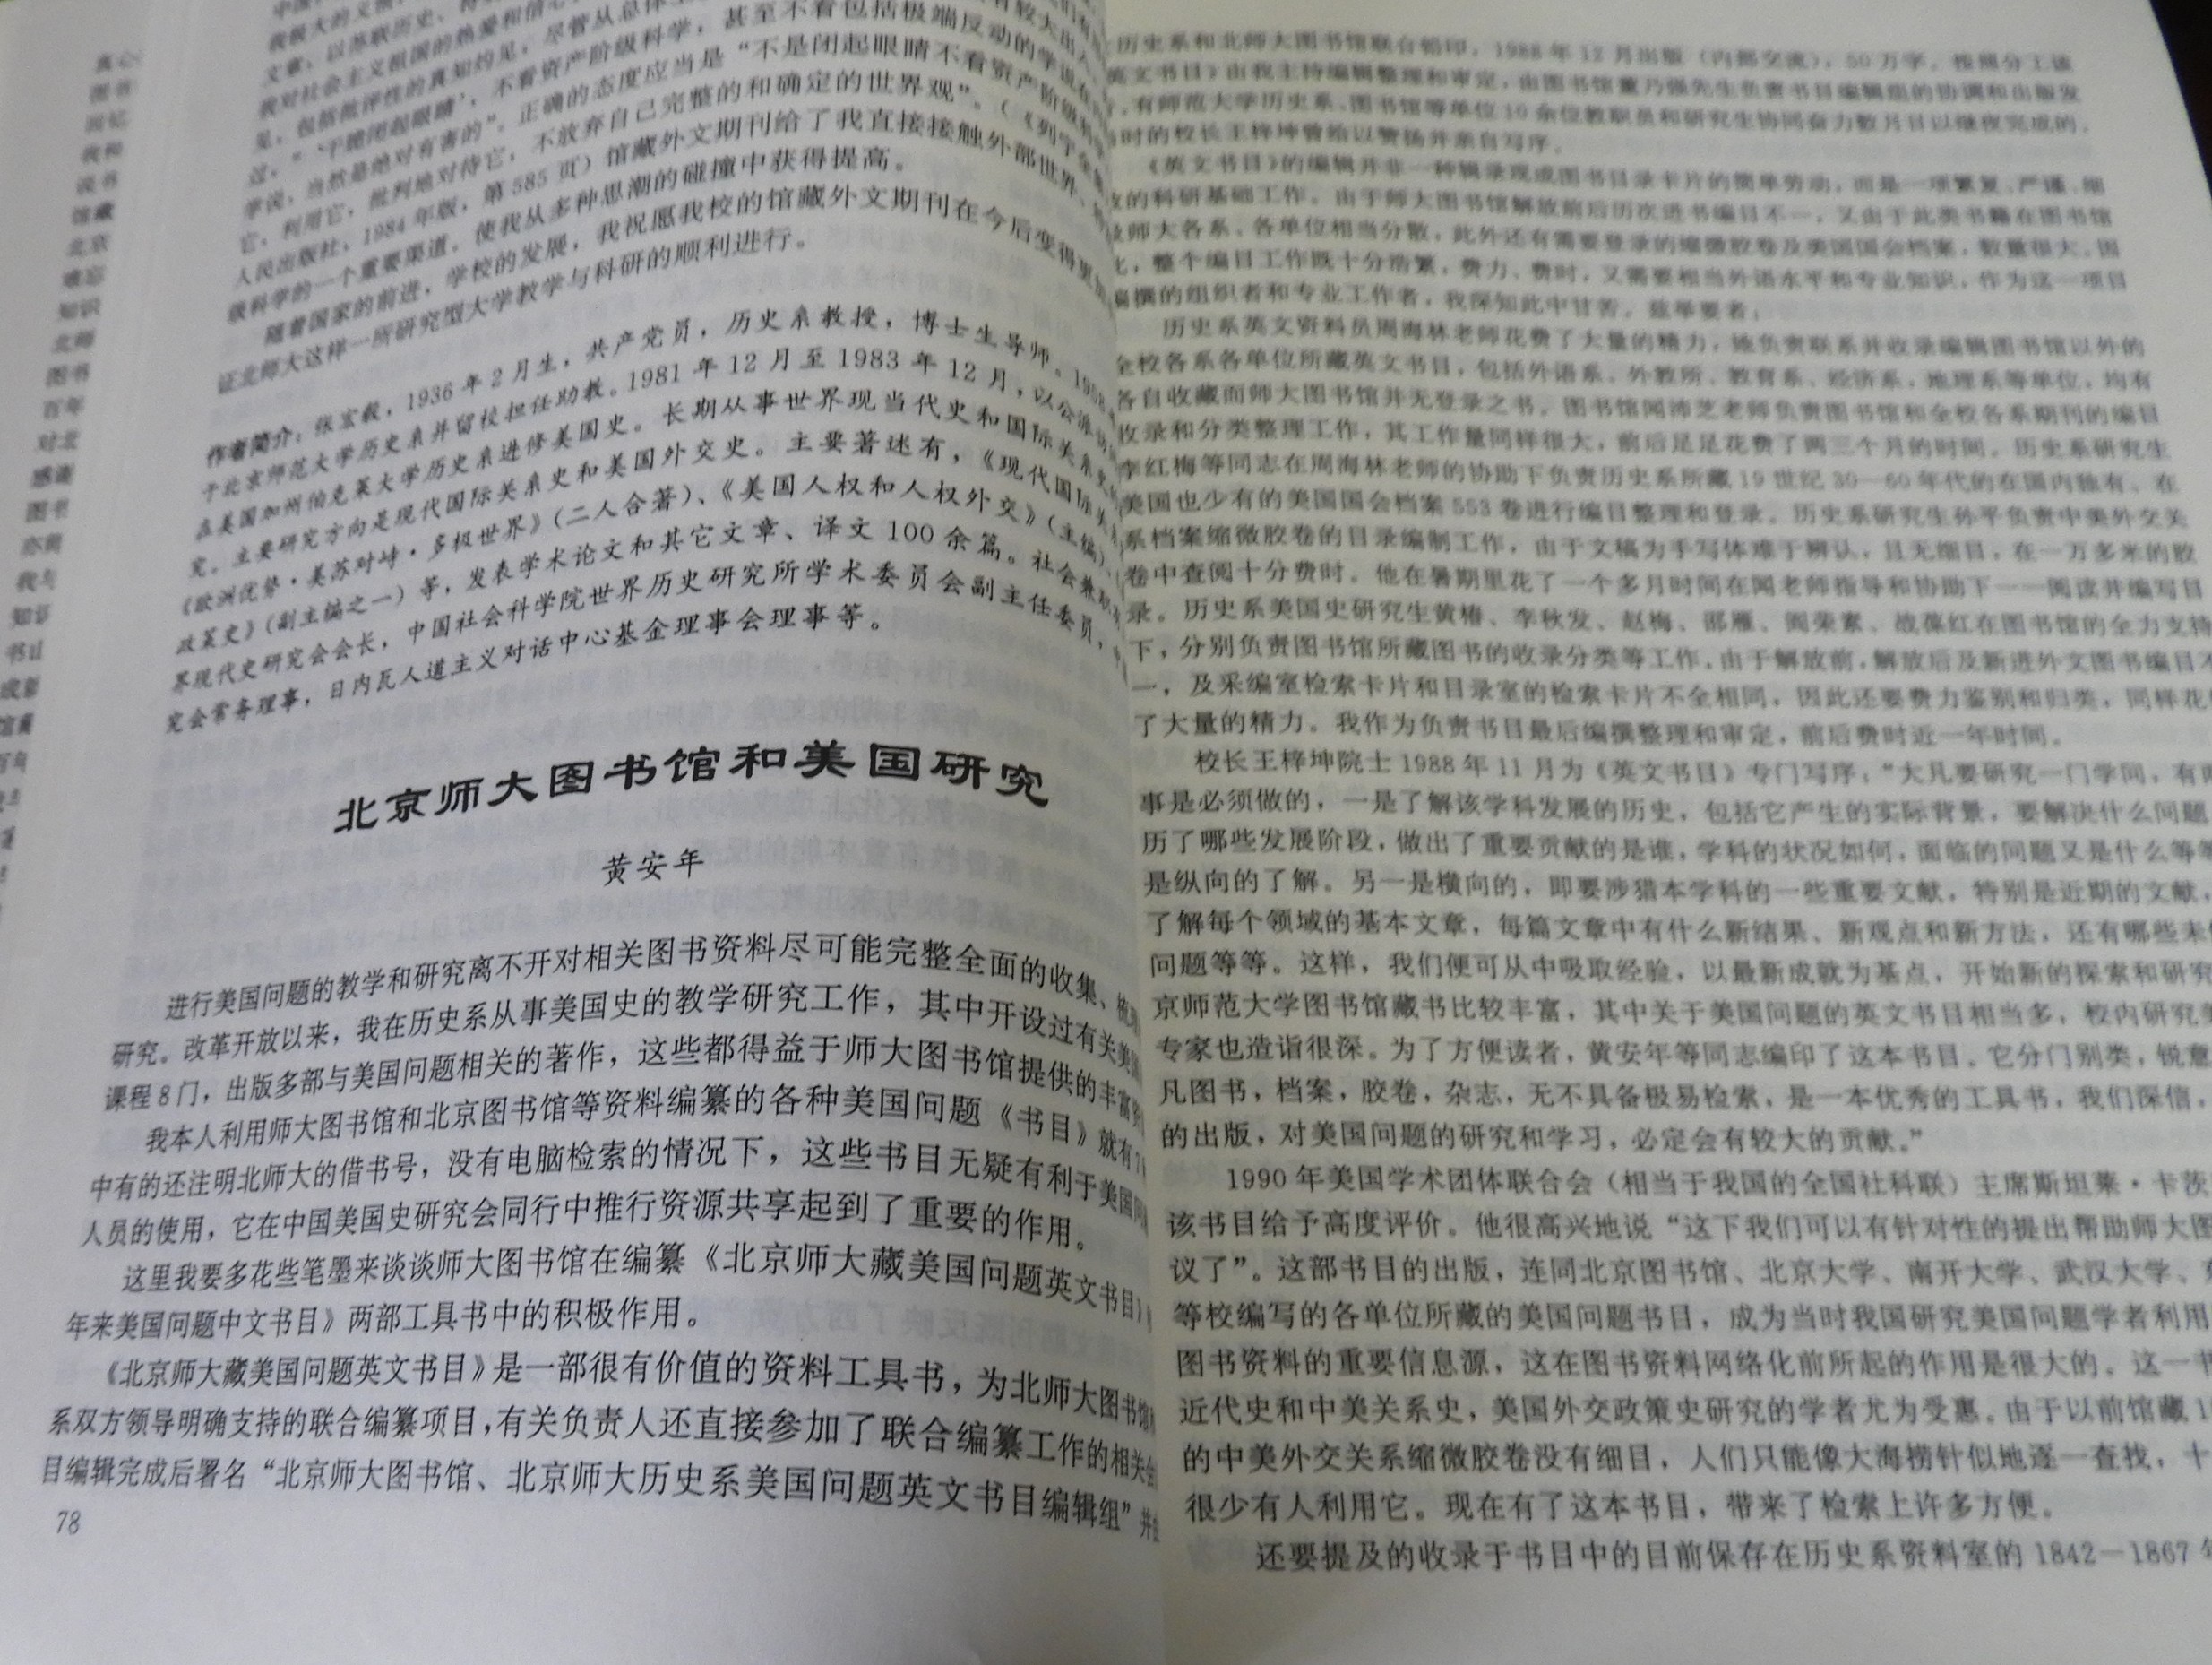 文章，以苏联历史、
我对社会主义祖国的热爱和信心
见，包括批评性的真知灼见，尽管从总体上
过，“‘干脆闭起眼睛’，不看资产阶级科学，甚至不看包括极端反动的学说在内
学说，当然是绝对有害的”。正确的态度应当是“不是闭起眼睛不看资产阶级科学
它，利用它，批判地对待它，不放弃自己完整的和确定的世界观”。（《列宁全集
人民出版社，1984年版，第585页）馆藏外文期刊给了我直接接触外部世界、
级科学的一个重要渠道。使我从多种思潮的碰撞中获得提高。
随着国家的前进，学校的发展，我祝愿我校的馆藏外文期刊在今后变得更加
证北师大这样一所研究型大学教学与科研的顺利进行。
作者简介：张宏毅，1936年2月生，共产党员，历史系教授，博士生导师。1958
于北京师范大学历史系并留校担任助教。1981年12月至1983年12月，以公派访问
在美国加州伯克莱大学历史系进修美国史。长期从事世界现当代史和国际关系史
究。主要研究方向是现代国际关系史和美国外交史。主要著述有，《现代国际关
《欧洲优势·美苏对峙·多极世界》（二人合著）、《美国人权和人权外交》（主编）、
政策史》（副主编之一）等，发表学术论文和其它文章、译文100余篇。社会兼职
界现代史研究会会长，中国社会科学院世界历史研究所学术委员会副主任委员，
究会常务理事，日内瓦人道主义对话中心基金理事会理事等。
北京师大图书馆和美国研究
黄安年
进行美国问题的教学和研究离不开对相关图书资料尽可能完整全面的收集、梳理
研究。改革开放以来，我在历史系从事美国史的教学研究工作，其中开设过有关美国
课程8门，出版多部与美国问题相关的著作，这些都得益于师大图书馆提供的丰富
我本人利用师大图书馆和北京图书馆等资料编纂的各种美国问题《书目》就有
中有的还注明北师大的借书号，没有电脑检索的情况下，这些书目无疑有利于美国问
人员的使用，它在中国美国史研究会同行中推行资源共享起到了重要的作用。
这里我要多花些笔墨来谈谈师大图书馆在编纂《北京师大藏美国问题英文书目》
年来美国问题中文书目》两部工具书中的积极作用。
《北京师大藏美国问题英文书目》是一部很有价值的资料工具书，为北师大图书馆
系双方领导明确支持的联合编纂项目，有关负责人还直接参加了联合编纂工作的相关会
目编辑完成后署名“北京师大图书馆、北京师大历史系美国问题英文书目编辑组”并由
78
历史系和北师大图书馆联合铅印，1988年12月出版（内部交流），50万字。按照分工该
英文书目》由我主持编辑整理和审定，由图书馆董乃强先生负责书目编辑组的协调和出版发
有师范大学历史系、图书馆等单位10余位教职员和研究生协同奋力数月日以继夜完成的，
时的校长王梓坤曾给以赞扬并亲自写序。
《英文书目》的编辑并非一种辑录现成图书目录卡片的简单劳动，而是一项繁复、严谨、细
的科研基础工作。由于师大图书馆解放前后历次进书编目不一，又由于此类书籍在图书馆
师大各系、各单位相当分散，此外还有需要登录的缩微胶卷及美国国会档案，数量很大。因
此，整个编目工作既十分浩繁，费力、费时，又需要相当外语水平和专业知识，作为这一项目
编撰的组织者和专业工作者，我深知此中甘苦。兹举要者：
历史系英文资料员周海林老师花费了大量的精力，她负责联系并收录编辑图书馆以外的
全校各系各单位所藏英文书目，包括外语系、外教所、教育系、经济系、地理系等单位，均有
各自收藏而师大图书馆并无登录之书。图书馆闻沛芝老师负责图书馆和全校各系期刊的编目
收录和分类整理工作，其工作量同样很大，前后足足花费了两三个月的时间。历史系研究生
李红梅等同志在周海林老师的协助下负责历史系所藏19世纪30—60年代的在国内独有、在
美国也少有的美国国会档案553卷进行编目整理和登录。历史系研究生孙平负责中美外交关
系档案缩微胶卷的目录编制工作，由于文稿为手写体难于辨认，且无细目，在一万多米的胶
卷中查阅十分费时。他在暑期里花了一个多月时间在闻老师指导和协助下一一阅读并编写目
录。历史系美国史研究生黄椿、李秋发、赵梅、邵雁、阎荣素、战葆红在图书馆的全力支持
下，分别负责图书馆所藏图书的收录分类等工作，由于解放前，解放后及新进外文图书编目不
一，及采编室检索卡片和目录室的检索卡片不全相同，因此还要费力鉴别和归类，同样花
了大量的精力。我作为负责书目最后编撰整理和审定，前后费时近一年时间。
校长王梓坤院士1988年11月为《英文书目》专门写序：“大凡要研究一门学问，有两
事是必须做的，一是了解该学科发展的历史，包括它产生的实际背景，要解决什么问题
历了哪些发展阶段，做出了重要贡献的是谁，学科的状况如何，面临的问题又是什么等等
是纵向的了解。另一是横向的，即要涉猎本学科的一些重要文献，特别是近期的文献，
了解每个领域的基本文章，每篇文章中有什么新结果、新观点和新方法，还有哪些未
问题等等。这样，我们便可从中吸取经验，以最新成就为基点，开始新的探索和研究
京师范大学图书馆藏书比较丰富，其中关于美国问题的英文书目相当多，校内研究
专家也造诣很深。为了方便读者，黄安年等同志编印了这本书目．它分门别类，锐意
凡图书，档案，胶卷，杂志，无不具备极易检索，是一本优秀的工具书，我们深信，
的出版，对美国问题的研究和学习，必定会有较大的贡献。”
1990年美国学术团体联合会（相当于我国的全国社科联）主席斯坦莱·卡茨
该书目给予高度评价。他很高兴地说“这下我们可以有针对性的提出帮助师大图
议了”。这部书目的出版，连同北京图书馆、北京大学、南开大学、武汉大学、
等校编写的各单位所藏的美国问题书目，成为当时我国研究美国问题学者利用
图书资料的重要信息源，这在图书资料网络化前所起的作用是很大的。这一书
近代史和中美关系史，美国外交政策史研究的学者尤为受惠。由于以前馆藏
的中美外交关系缩微胶卷没有细目，人们只能像大海捞针似地逐一查找，十
很少有人利用它。现在有了这本书目，带来了检索上许多方便。
还要提及的收录于书目中的目前保存在历史系资料室的1842－1867年